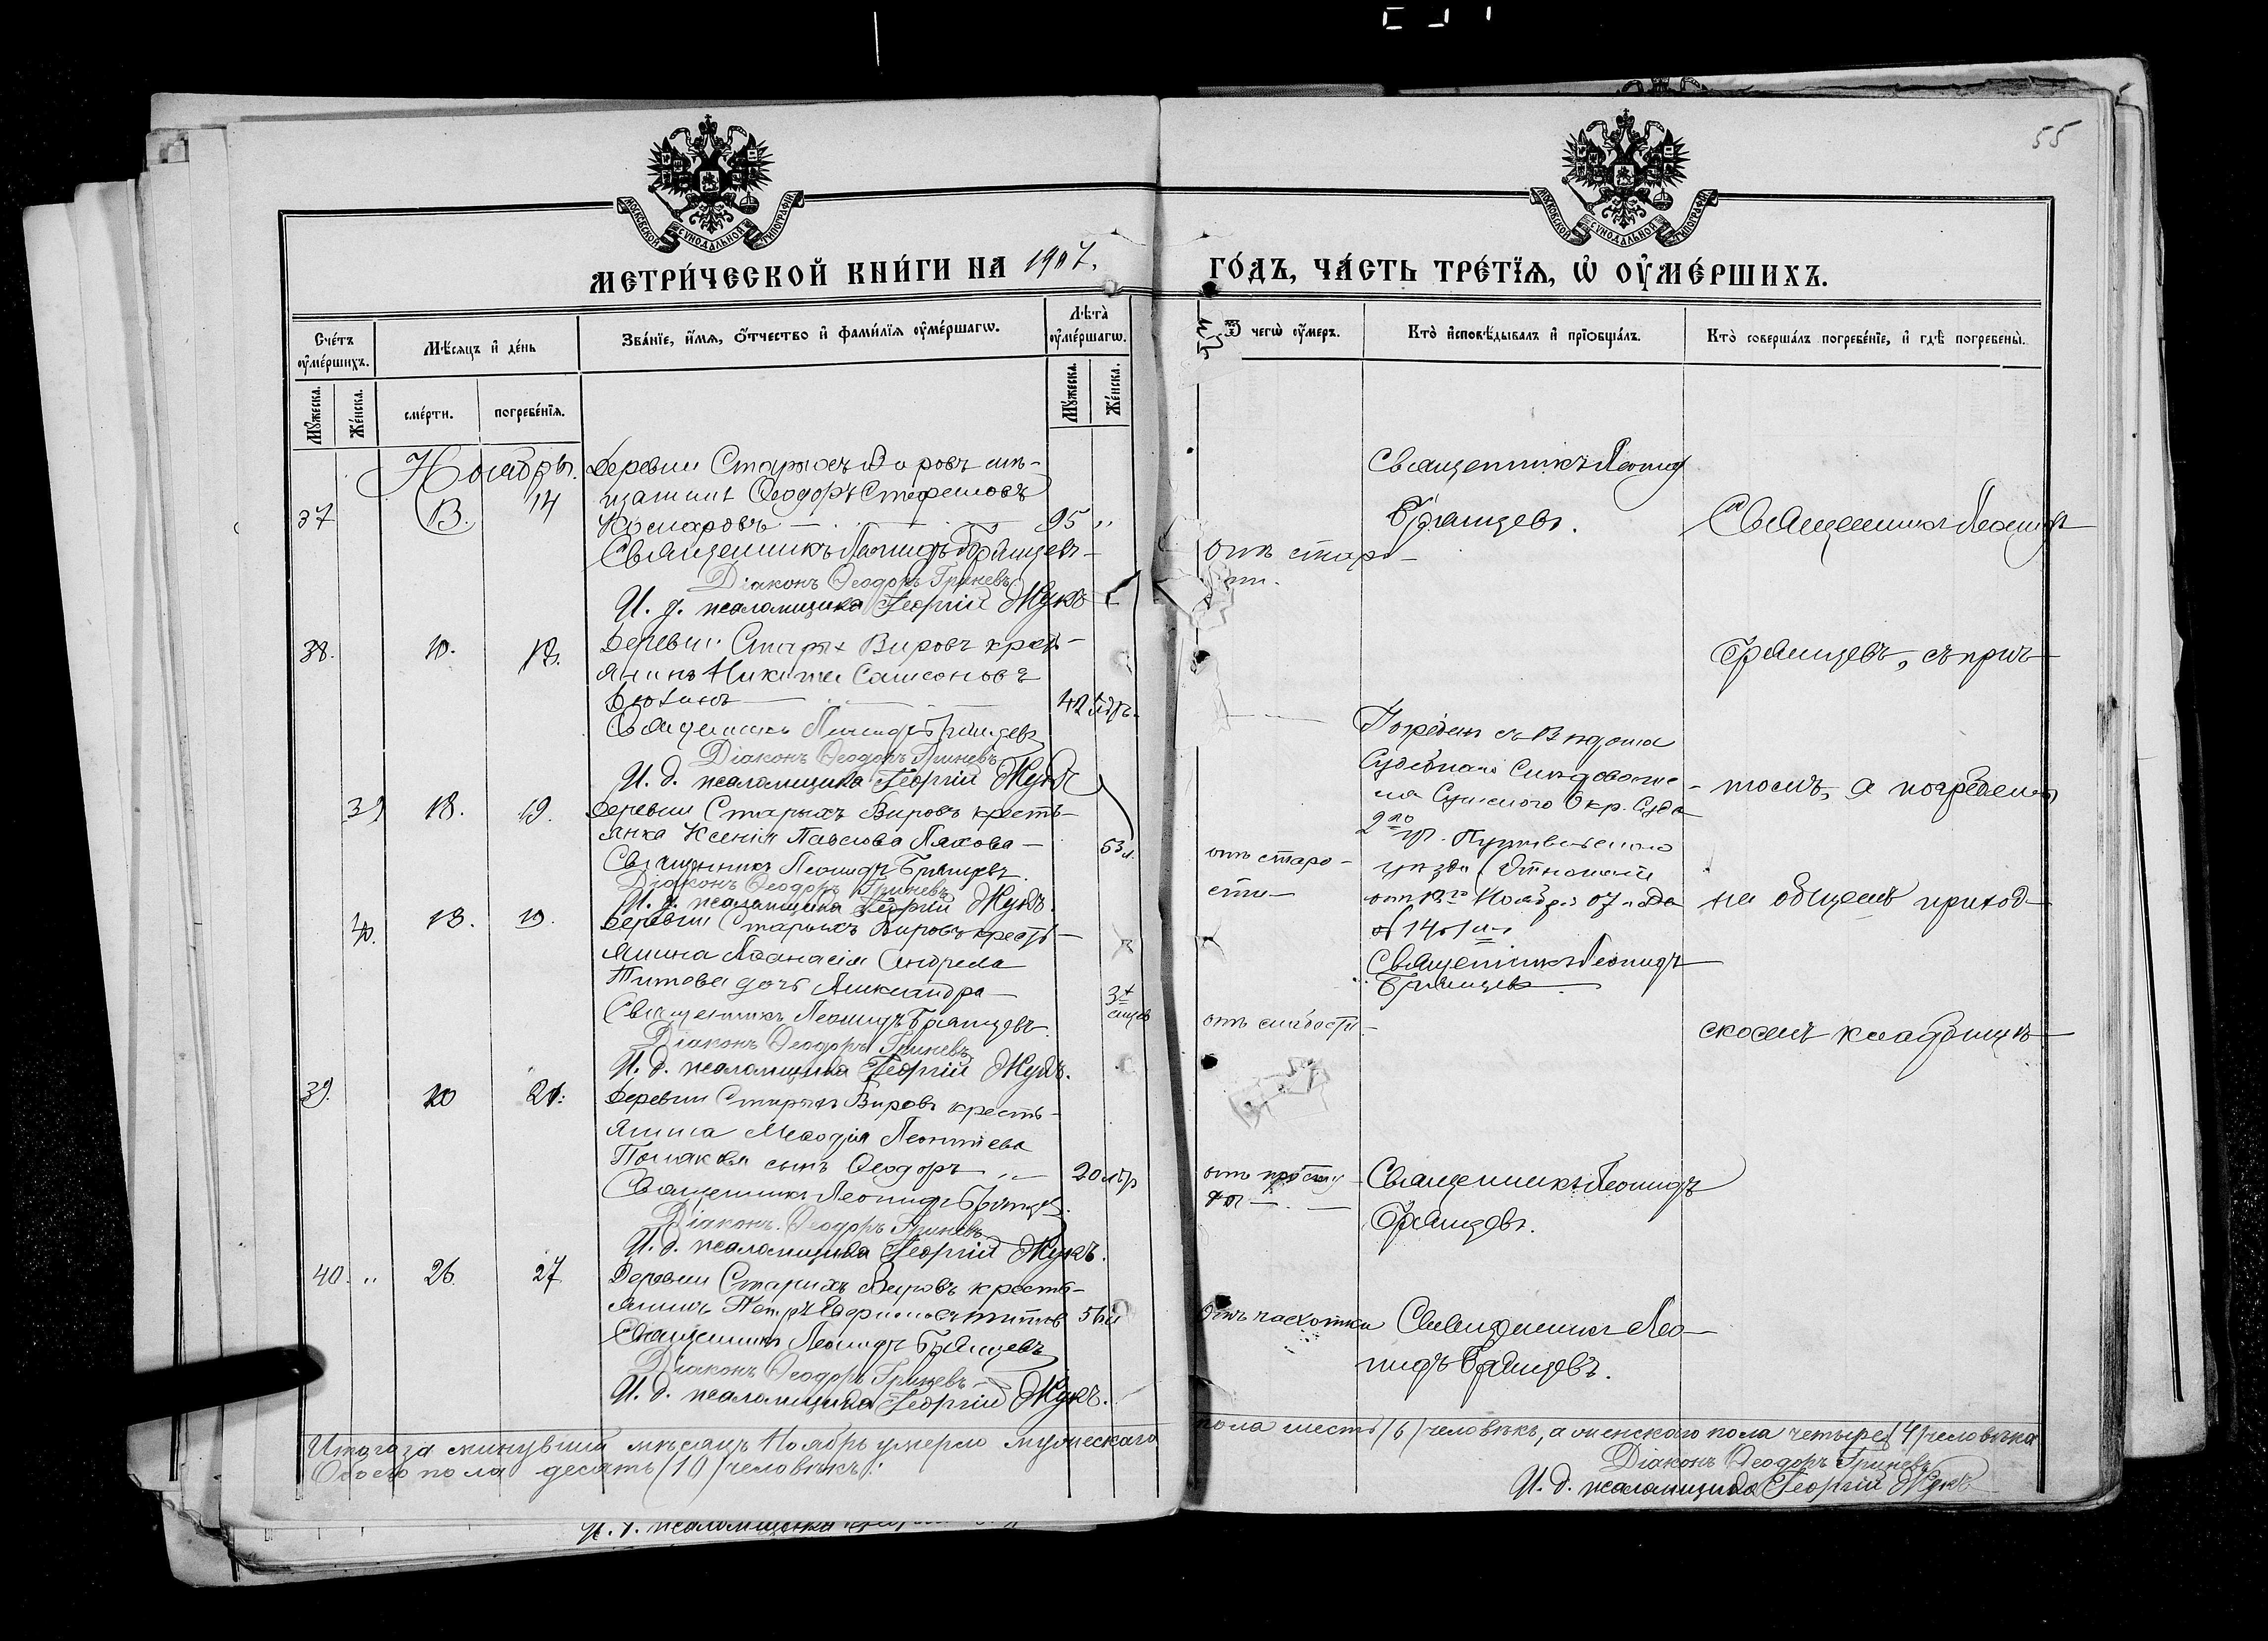 55
МОСКОВСКОЙ СѴНОДАЛЬНОЙ ТИПОГРАФІИ
МОСКОВСКОЙ СѴНОДАЛЬНОЙ ТИПОГРАФІИ
МЕТРИ́ЧЕСКОЙ КНИ́ГИ НА 1907.
ГО́ДЪ, ЧА́СТЬ ТРЕ́ТЇѦ, Ѡ ОУ҆МЕ́РШИХЪ.
Сче́тъ оу҆ме́ршихъ.
Мѣ́сяцъ и҆ де́нь
Зва́нїе, и҆́мѧ, о҆́тчество и҆ фами́лїѧ оу҆ме́ршагѡ.
Лѣта̀ оу҆ме́ршагѡ.
чегѡ̀ оу҆́меръ.
Кто̀ и҆сповѣ́дывалъ и҆ прїобща́лъ.
Кто̀ соверша́лъ погребе́нїе, и҆ гдѣ̀ погребены̀.
Мꙋ́жеска.
Же́нска.
сме́рти.
погребе́нїѧ.
Мꙋ́жеска.
Же́нска.
Ноябрь.
Деревни Старыхъ Вировъ мѣ-
37 13. 14 щанинъ Ѳеодоръ Стефановъ
Комаровъ — 95 "
Священникъ Леонидъ Бранцевъ
Діаконъ Ѳеодоръ Гриневъ
И. д. псаломщика Георгій Жукъ
отъ старо-
сти.
Священникъ Леонидъ
Бранцевъ.
Священникъ Леонидъ
38. 10. 13. Деревни Старых Вировъ крест-
янинъ Никита Самсоновъ
42
Священникъ Леонидъ Бранцевъ
Діаконъ Ѳеодоръ Гриневъ
И. д. псаломщика Георгій Жукъ
Погребенъ съ
Судебнаго Слѣдовате-
ля Сумскаго Окр. Суда
2го уч. Путивльскаго
уѣзда (Отношеніе
отъ Ноября 07 года
Бранцевъ, съ прич-
томъ, а погребены
39 18. 19. Деревни Старыхъ Вировъ кресть-
янка Ксенія Павлова Ляхова — 53 л.
Священникъ Леонидъ Бранцевъ
Діаконъ Ѳеодоръ Гриневъ
И. д. псаломщика Георгій Жукъ.
отъ старо-
сти —
Священникъ Леонидъ
Бранцевъ.
на общемъ приход-
40. 18. 19. Деревни Старыхъ Вировъ кресть-
янина Аѳанасія Андреева
Титова дочь Александра — 3
Священникъ Леонидъ Бранцевъ
Діаконъ Ѳеодоръ Гриневъ
И. д. псаломщика Георгій Жукъ.
отъ слабости —
скомъ кладбищѣ
39. 20 21. Деревни Старыхъ Вировъ кресть-
янина Меѳодія Леонтіева
Полякова сынъ Ѳеодоръ " — 20
Священникъ Леонидъ Бранцевъ.
Діаконъ Ѳеодоръ Гриневъ
И. д. псаломщика Георгій Жукъ.
отъ просту-
ды —
Священникъ Леонидъ
Бранцевъ.
40. " 26. 27 Деревни Старихъ Вировъ кресть-
янинъ Петръ Титовъ 56
Священникъ Леонидъ Бранцевъ
Діаконъ Ѳеодоръ Гриневъ
И. д. псаломщика Георгій Жукъ.
Отъ чахотки
Священникъ Лео-
нидъ Бранцевъ.
Итого за минувшій мѣсяцъ Ноябрь умерло мужескаго
пола шесть (6) человѣкъ, а женскаго пола четыре (4) человѣка
Обоего пола десять (10) человѣкъ.
Діаконъ Ѳеодоръ Гриневъ
И. д. псаломщика Георгій Жукъ